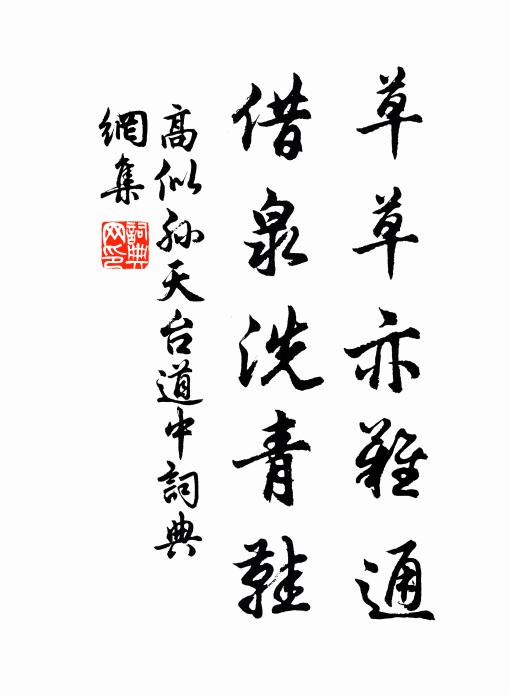 草草亦難通
借泉洗青鞋
高似孫天台道中詞典
網集
詞典
网印